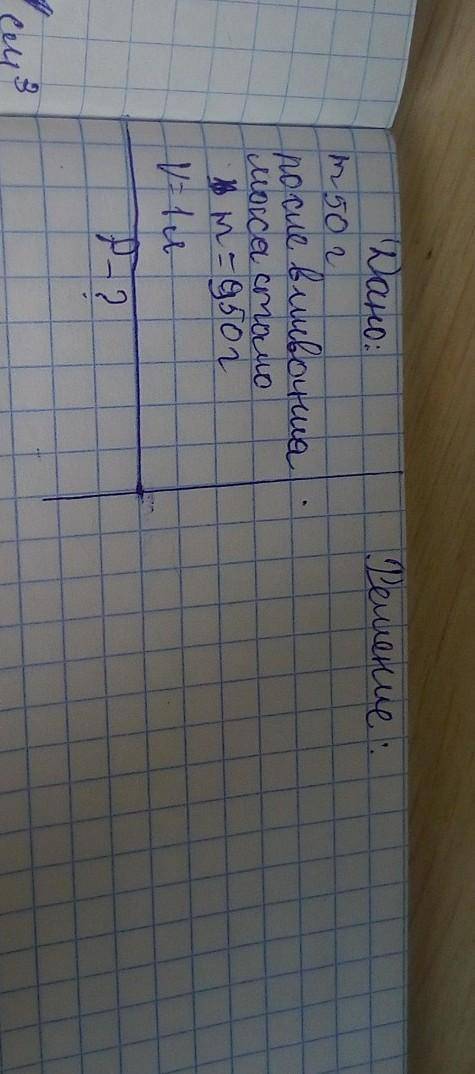 см³
Дано:
m 50 г
после вливания
маса стало
m = 950 г
V = 1 л
р - ?
Решение: